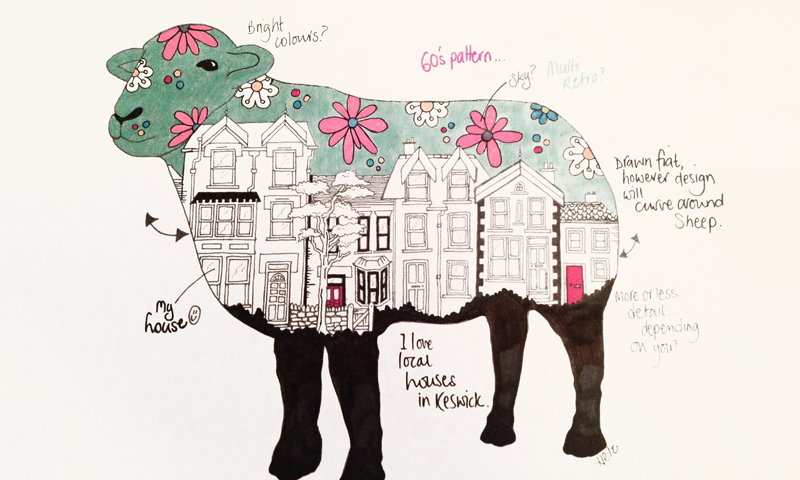 Bright
colours?
60's pattern...
Sky?
Multi
Retro?
Drawn flat,
however design
will
curve around
Sheep.
My
house
More or less
detail...
depending
on you?
I love
local
houses
in Keswick.